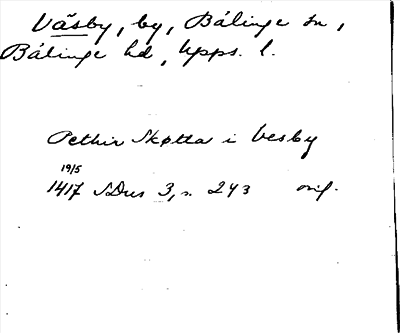 Väsby, by, Bälinge sn,
Bälinge hd, Upps. l.
Pethir Skotta i Vesby
19/5
1417 SDns 3, s. 243 orig.